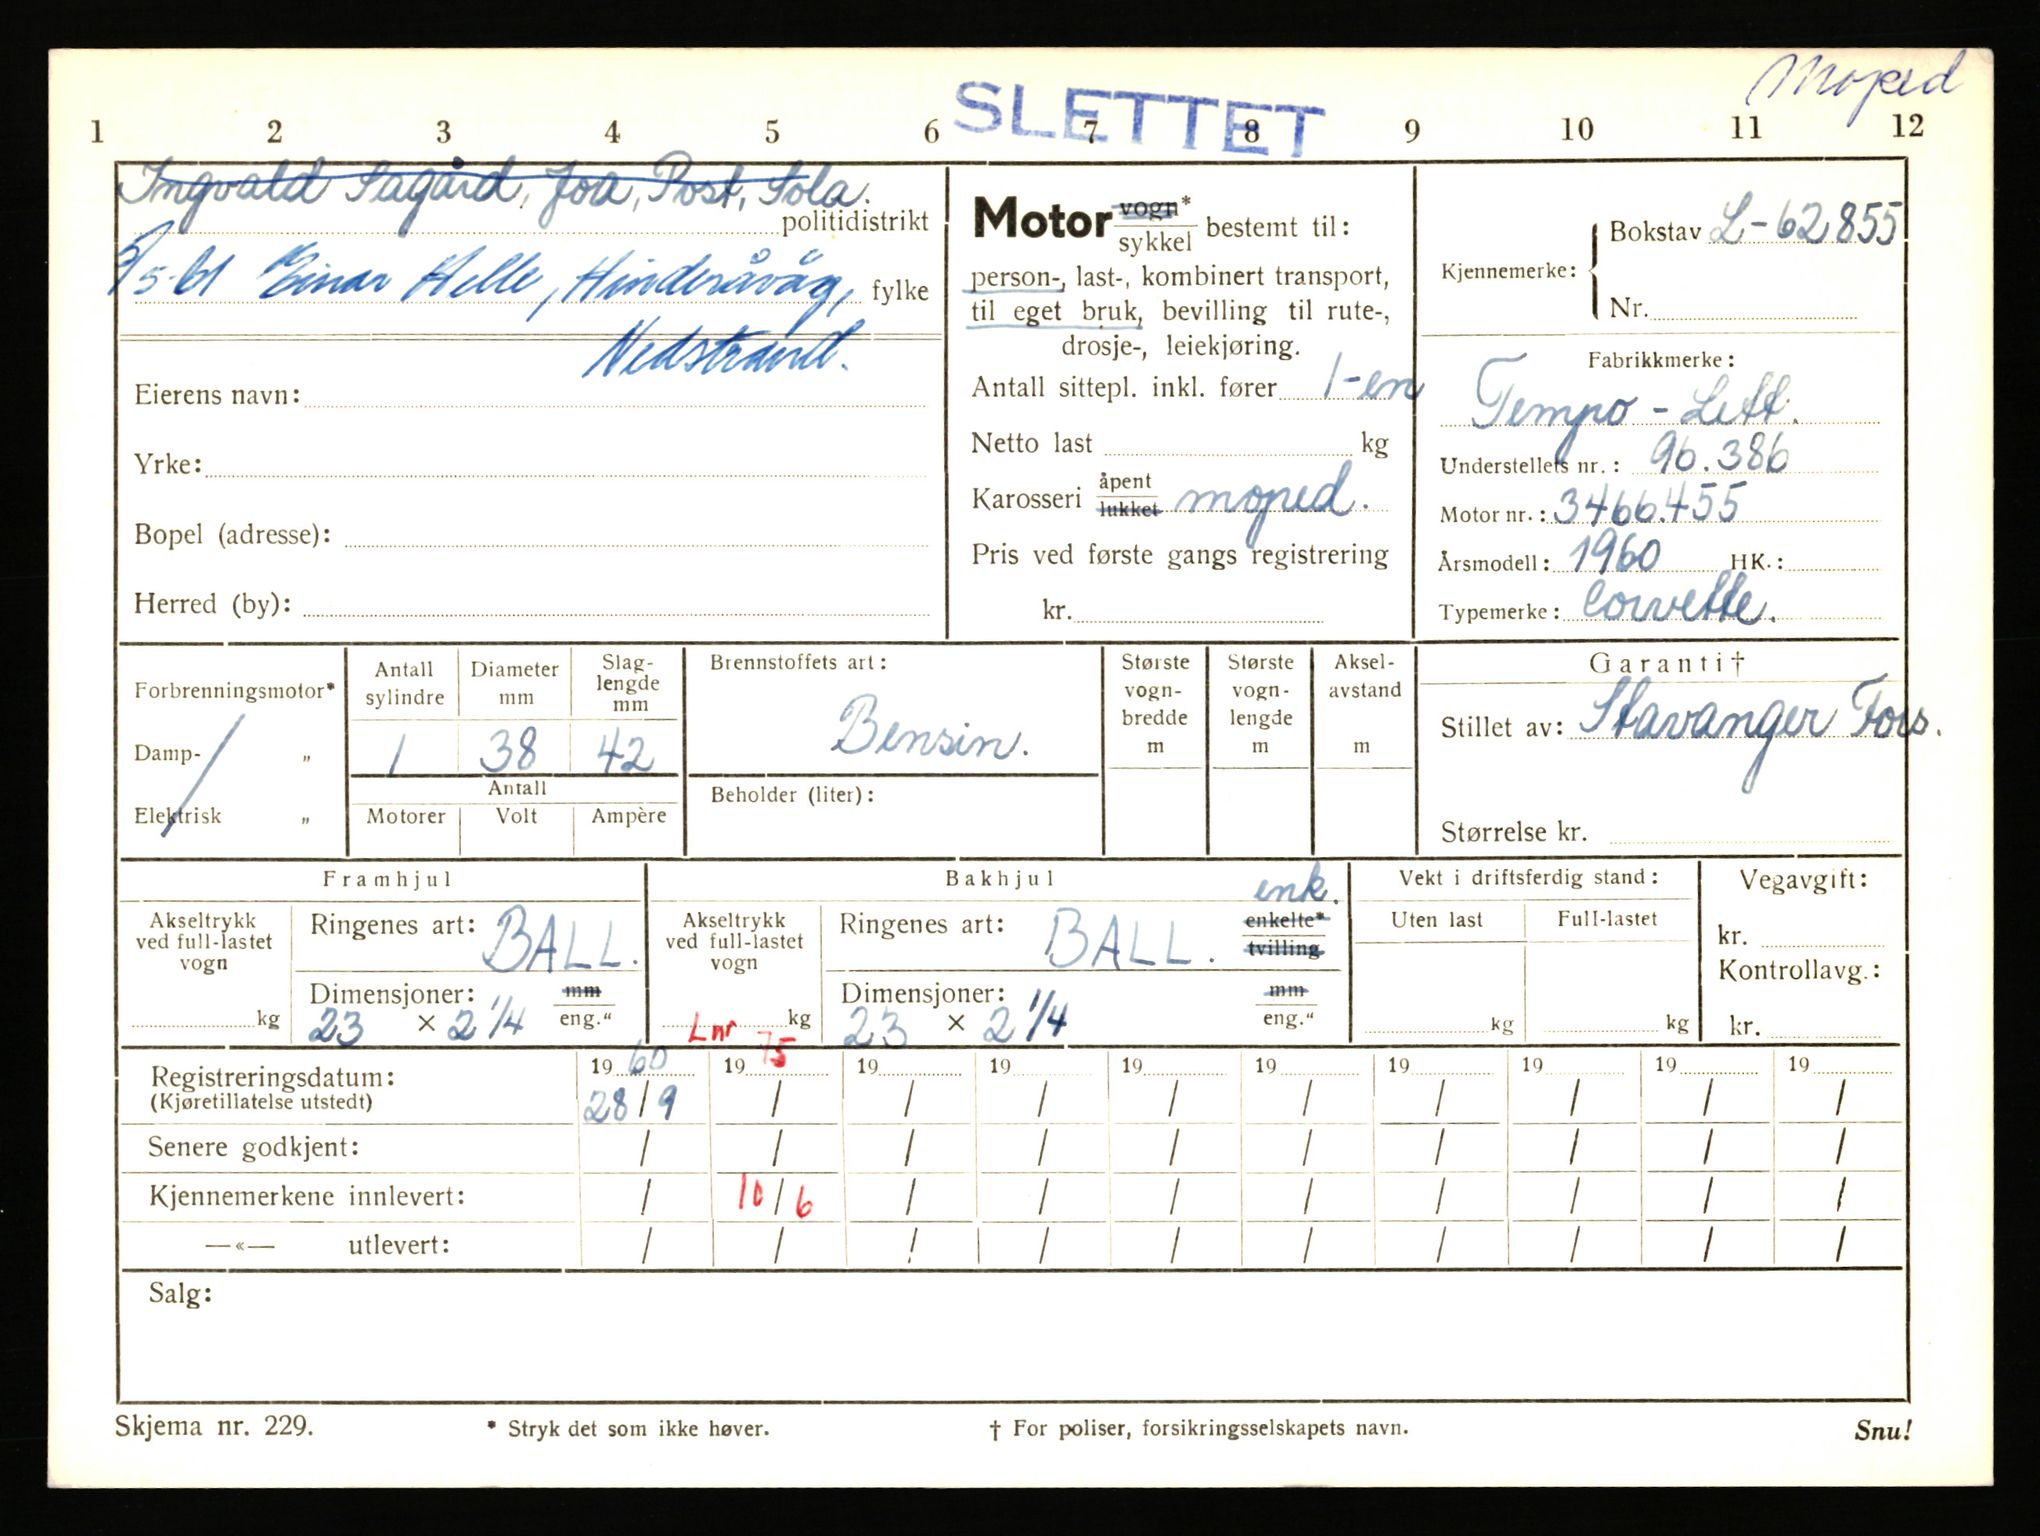 Moped
SLETTET
1 2 3 4 5 6 7 8 9 10 11 12
Ingvald Sagård, Joa, Post, Sola.
politidistrikt
5-61 Einar Helle, Hinderåvåg, fylke
Nedstrand.
Eierens navn:
Yrke:
Bopel (adresse):
Herred (by):
Motor vogn* sykkel bestemt til:
person-, last-, kombinert transport,
til eget bruk, bevilling til rute-,
drosje-, leiekjøring.
Antall sittepl. inkl. fører 1-en
Netto last kg
Karosseri åpent lukket moped.
Pris ved første gangs registrering
kr.
Kjennemerke:
Bokstav L-62855
Nr.
Fabrikkmerke:
Tempo - Lett.
Understellets nr.: 96.386
Motor nr.: 3466.455
Årsmodell: 1960 HK.:
Typemerke: Corvette.
Forbrenningsmotor*
Damp- „
Elektrisk „
Antall sylindre
1
Diameter mm
38
Slag-
lengde
mm
42
Antall
Motorer Volt Ampère
Brennstoffets art:
Bensin.
Beholder (liter):
Største
vogn-
bredde
m
Største
vogn-
lengde
m
Aksel-
avstand
m
Garanti†
Stillet av: Stavanger Fors.
Størrelse kr.
Framhjul
Akseltrykk
ved full-lastet
vogn
kg
Ringenes art: BALL.
Dimensjoner: mm
23 × 2 1/4 eng."
Bakhjul
Akseltrykk
ved full-lastet
vogn
kg
Ringenes art: BALL. enk.
enkelte*
tvilling
Dimensjoner: mm
23 × 2 1/4 eng."
Vekt i driftsferdig stand:
Uten last Full-lastet
kg kg
Vegavgift:
kr.
Kontrollavg.:
kr.
L nr
Registreringsdatum: 19 60 19 75 19 19 19 19 19 19 19 19
(Kjøretillatelse utstedt) 28/9 / / / / / / / / /
Senere godkjent: / / / / / / / / / /
Kjennemerkene innlevert: / 10/6 / / / / / / / /
—«— utlevert: / / / / / / / / / /
Salg:
Skjema nr. 229. * Stryk det som ikke høver. † For poliser, forsikringsselskapets navn. Snu!